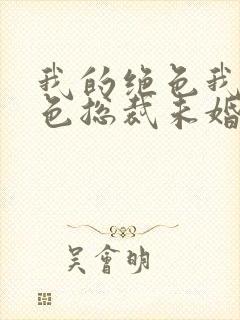 我的绝色我
色总裁未婚
吴會明